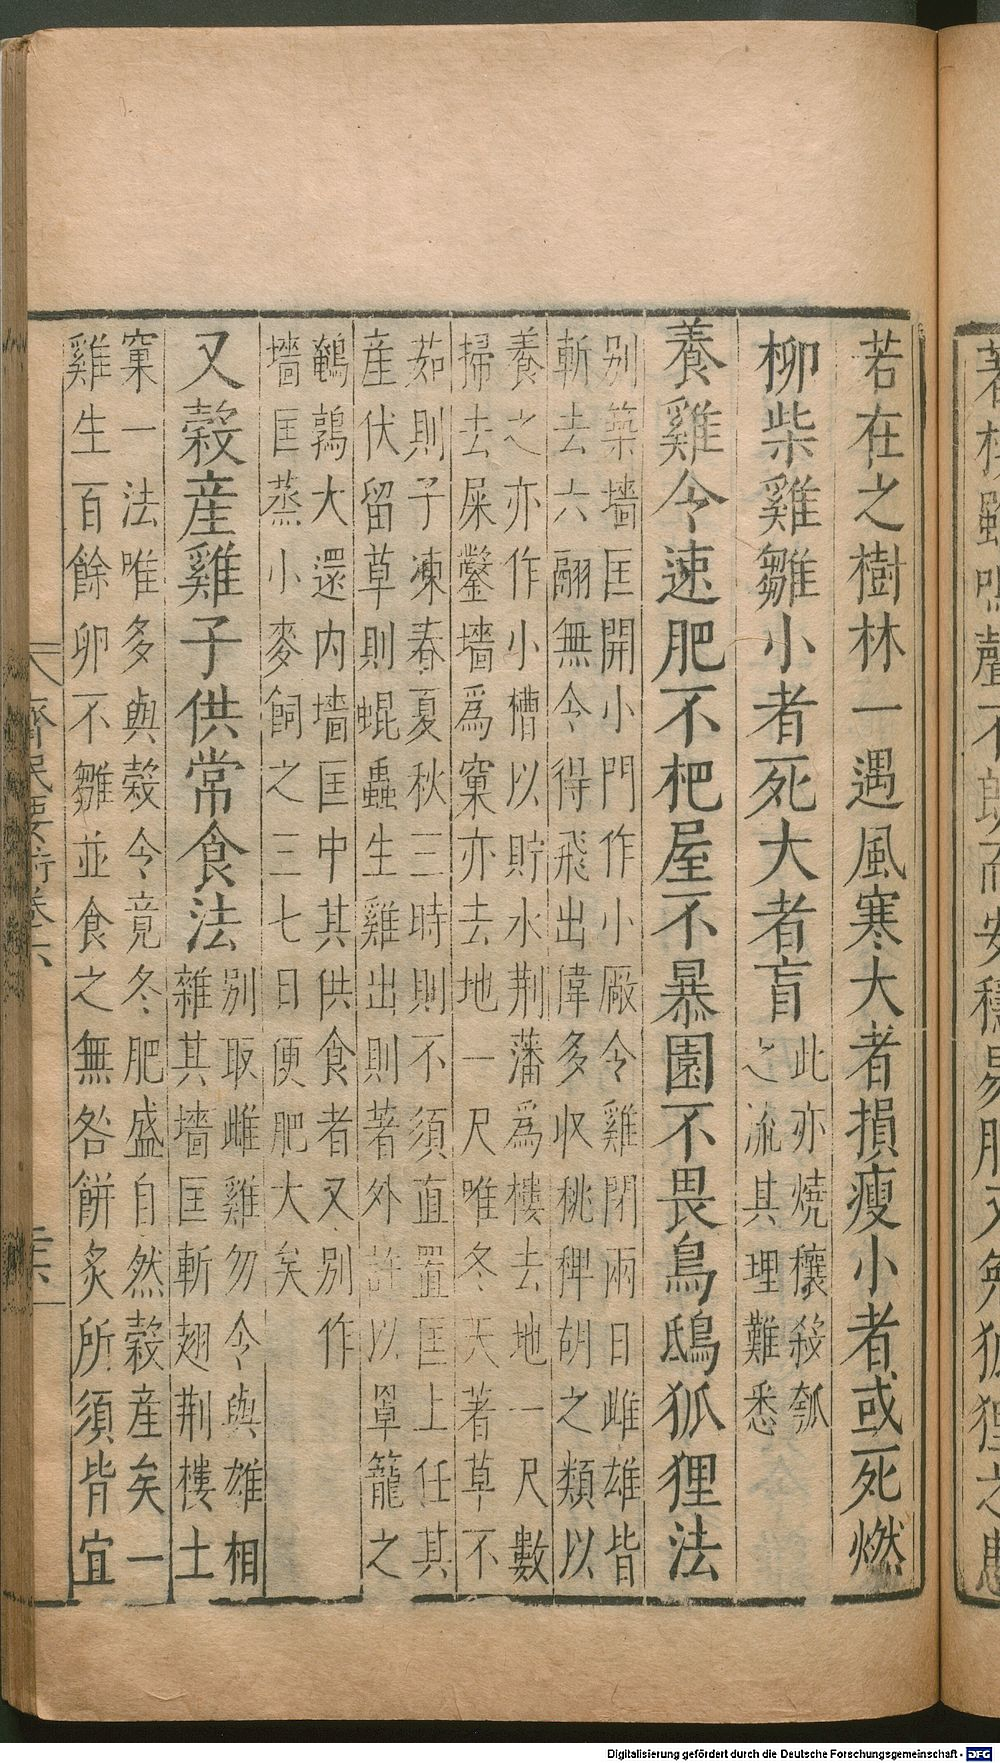 若在之樹林一遇風寒大者損瘦小者或死燃
柳柴雞雛小者死大者盲
此亦燒穰殺瓠
之流其理難悉
養雞令速肥不杷屋不暴園不畏鳥鴟狐狸法
別築墻匡開小門作小厰令雞閉雨日雌雄皆
斬去六翮無令得飛出偉多收秕稗胡之類以
養之亦作小槽以貯水荆藩爲棲去地一尺數
掃去屎鑿墻爲窠亦去地一尺唯冬天著草不
茹則子凍春夏秋三時則不須直置匡上任其
産伏留草則蜫蟲生雞出則著外許以罩籠之
鵪鶉大還内墻匡中其供食者又别作
墻匡蒸小麥飼之三七日便肥大矣
又穀産雞子供常食法
別取雌雞勿令與雄相
雜其墻匡斬翅荆棲土
窠一法唯多與穀令竟冬肥盛自然穀産矣一
雞生百餘卵不雛並食之無咎餅炙所須皆宜
齊民要術卷六
Digitalisierung gefördert durch die Deutsche Forschungsgemeinschaft - DFG